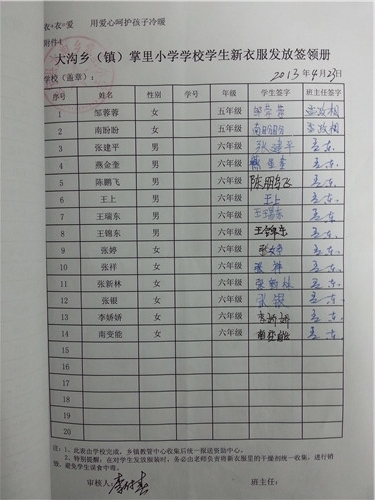 衣+衣=爱 用爱心呵护孩子冷暖
附件4
大沟乡（镇）掌里小学学校学生新衣服发放签领册
学校（盖章）： 2013年4月23日
序号 姓名 性别 学号 年级 学生签字 班主任签字
1 邹蓉蓉 女 五年级 邹蓉蓉
2 南盼盼 女 五年级 南盼盼
3 张建平 男 六年级 张建平
4 燕金奎 男 六年级 燕金奎
5 陈鹏飞 男 六年级 陈鹏飞
6 王上 男 六年级 王上
7 王瑞东 男 六年级 王瑞东
8 王锦东 男 六年级 王锦东
9 张婷 女 六年级 张婷
10 张祥 女 六年级 张祥
11 张新林 女 六年级 张新林
12 张银 女 六年级 张银
13 李娇娇 女 六年级 李娇娇
14 南变能 女 六年级 南变能
15
16
17
18
19
20
注：1、此表由学校完成，乡镇教管中心收集后统一报送资助中心。
2、特别提醒：在对学生发放服装时，务必由老师负责将新衣服里的干燥剂统一收集，进行销
毁，避免学生误食中毒。
审核人： 班主任：